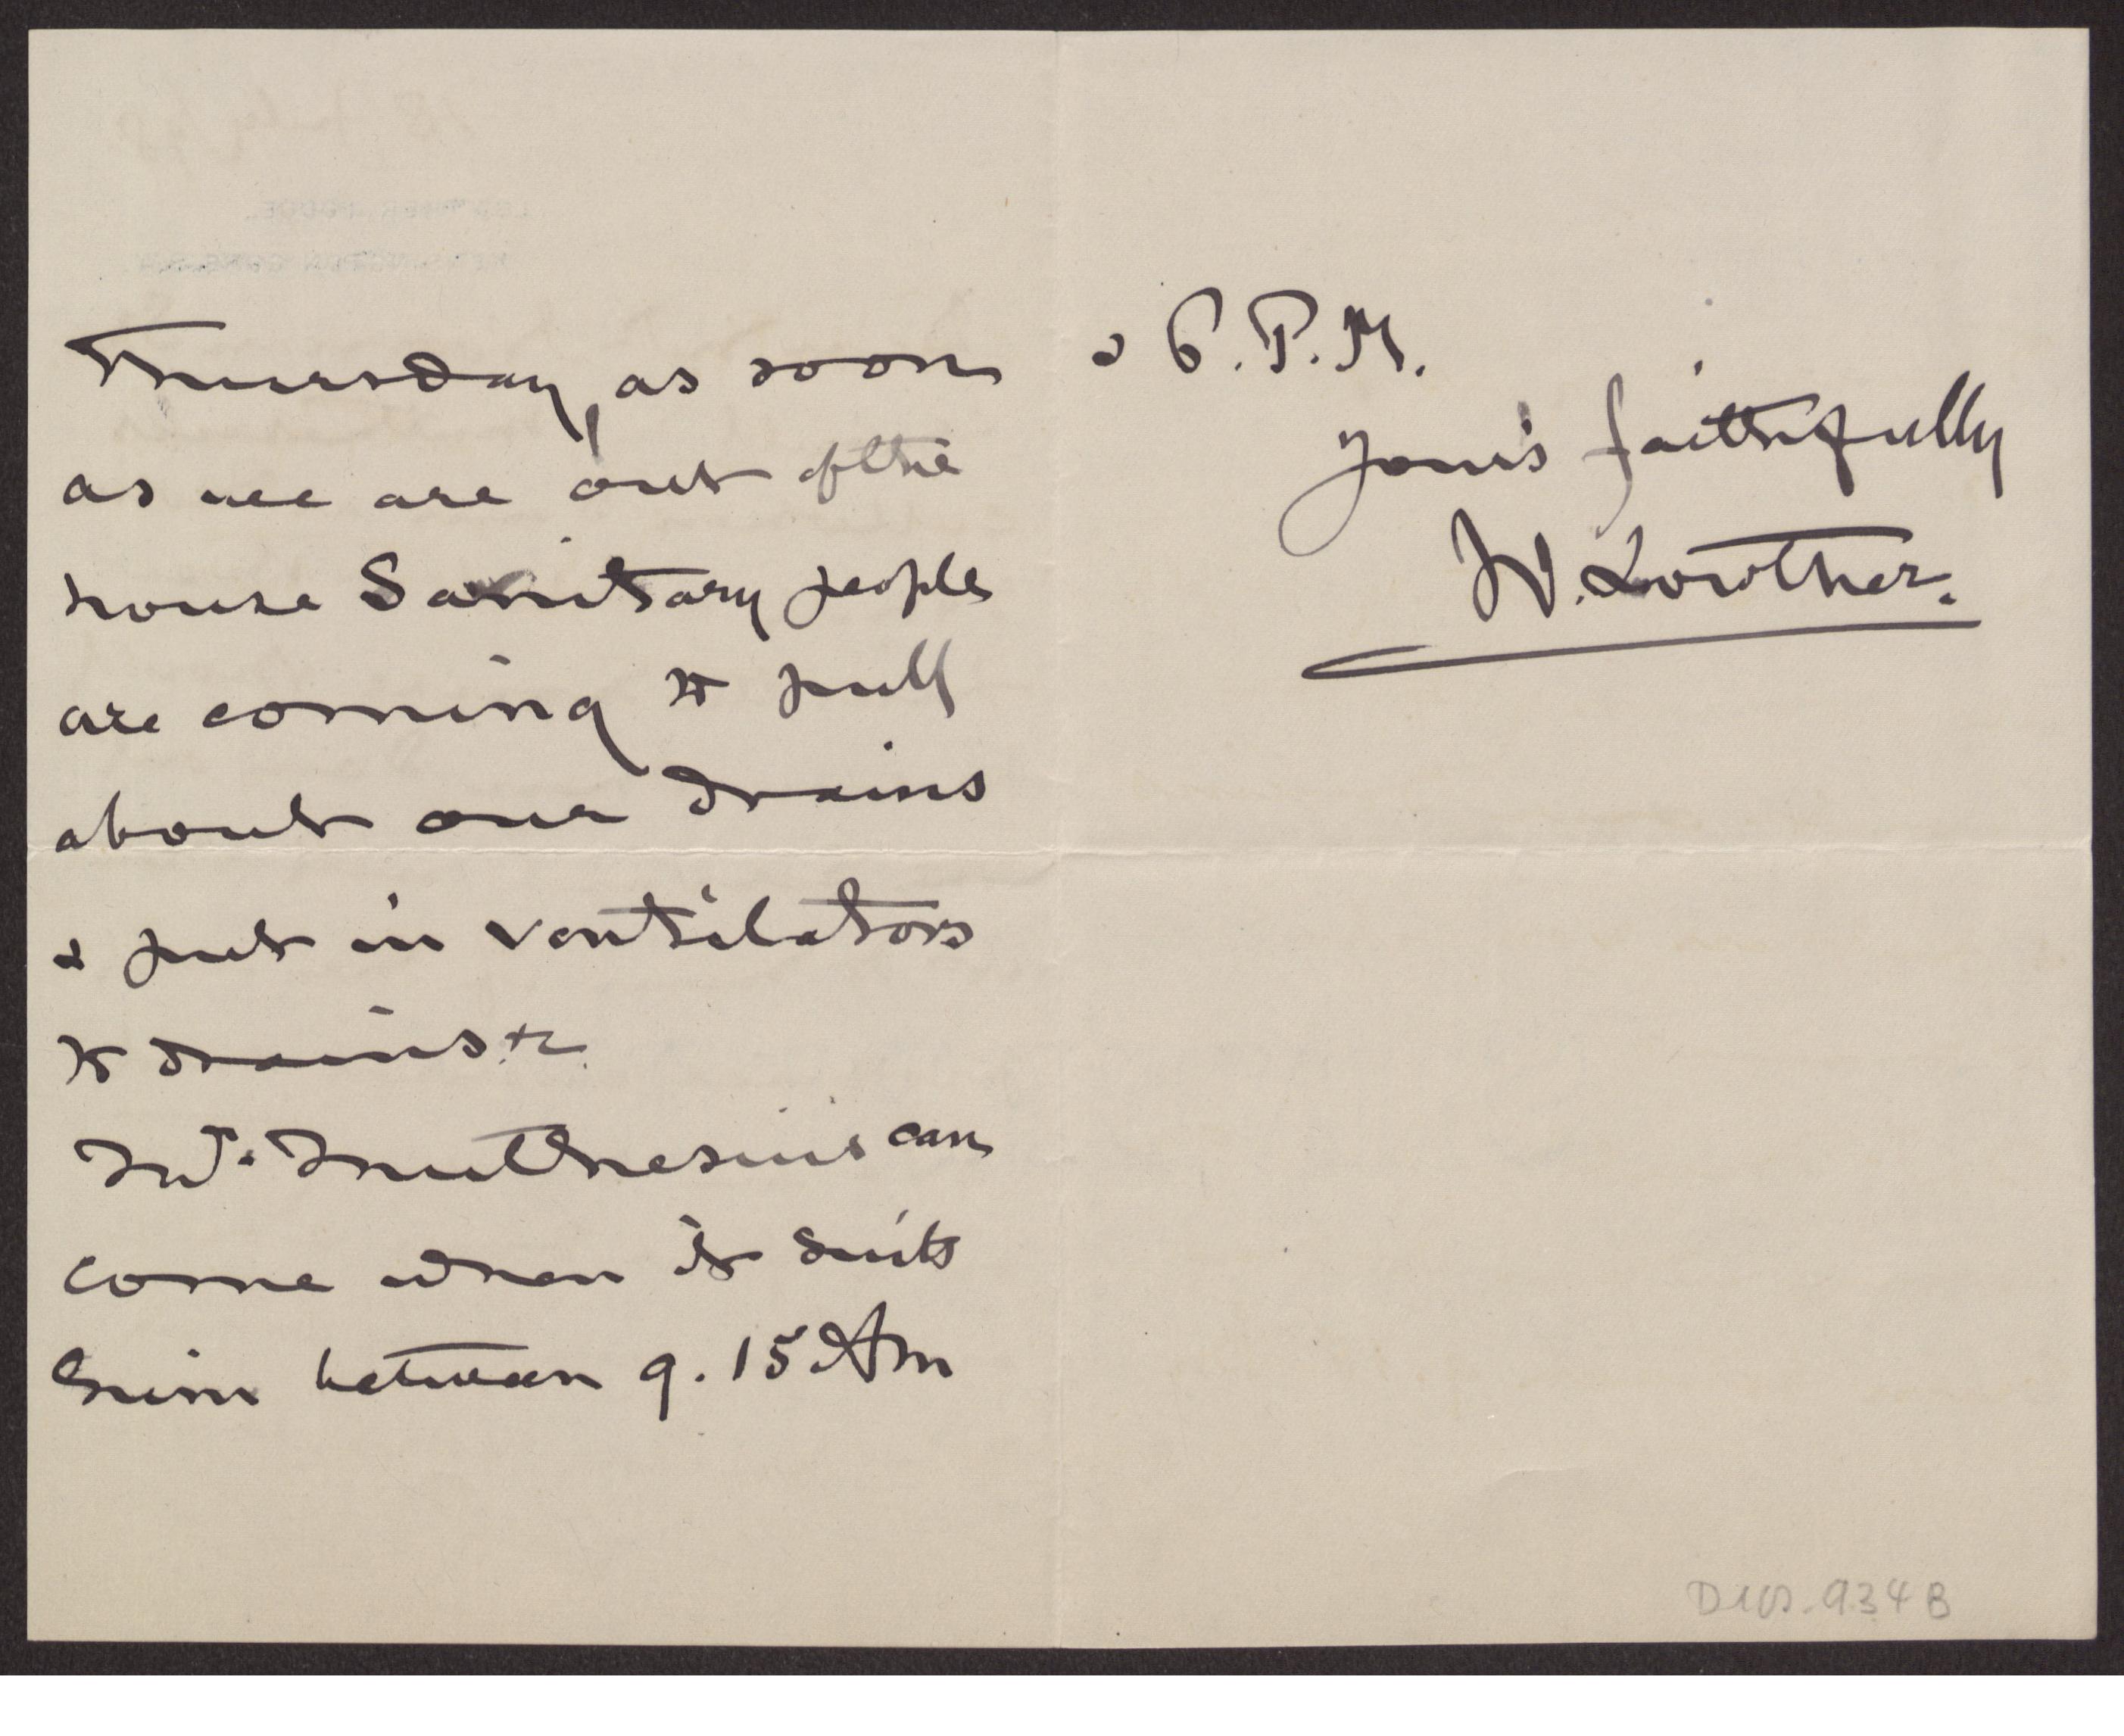 Thursday, as soon
as we are out of the
house Sanitary people
are coming to pull
about our drains
& put in ventilators
to drains &c.
Mr. Muthesius can
come when it suits
him between 9.15 Am
& 6. P. M.
Yours faithfully
W. Lowther.
D 102-934 B